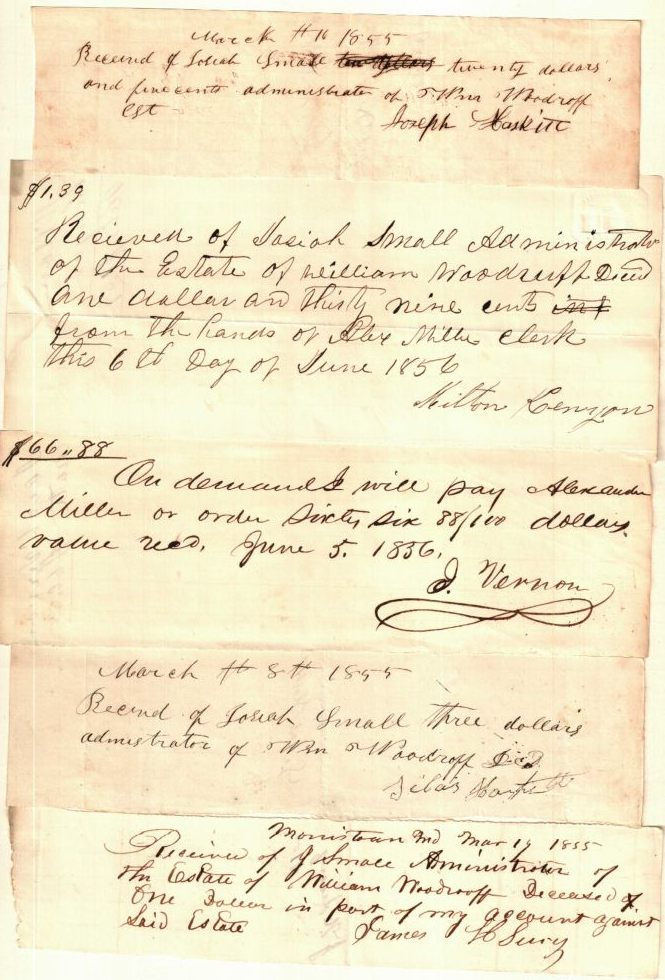 March th 10 1855
Receved of Josiah Small ten dollars twenty dollars
and five cents administrator of Wm Woodroff
Est
Joseph Haskitt
$1.39
Recieved of Josiah Small Administrator
of the Estate of William Woodruff Decd
one dollar an thirty nine cents
from the hands of Alex Miller clerk
this 6th Day of June 1856
Milton Kenyon
$66.88
On demand I will pay Alexander
Miller or order sixty six 88/100 dollars
value recd. June 5. 1856.
J. Vernon
March th 8th 1855
Recevd of Josiah Small three dollars
admistrator of Wm Woodroff Decd
Silas
Morristown Ind Mar 19 1855
Received of J Small Administrator of
the Estate of William Woodroof Deceased
One Dollar in part of my account against
Said Estate
James